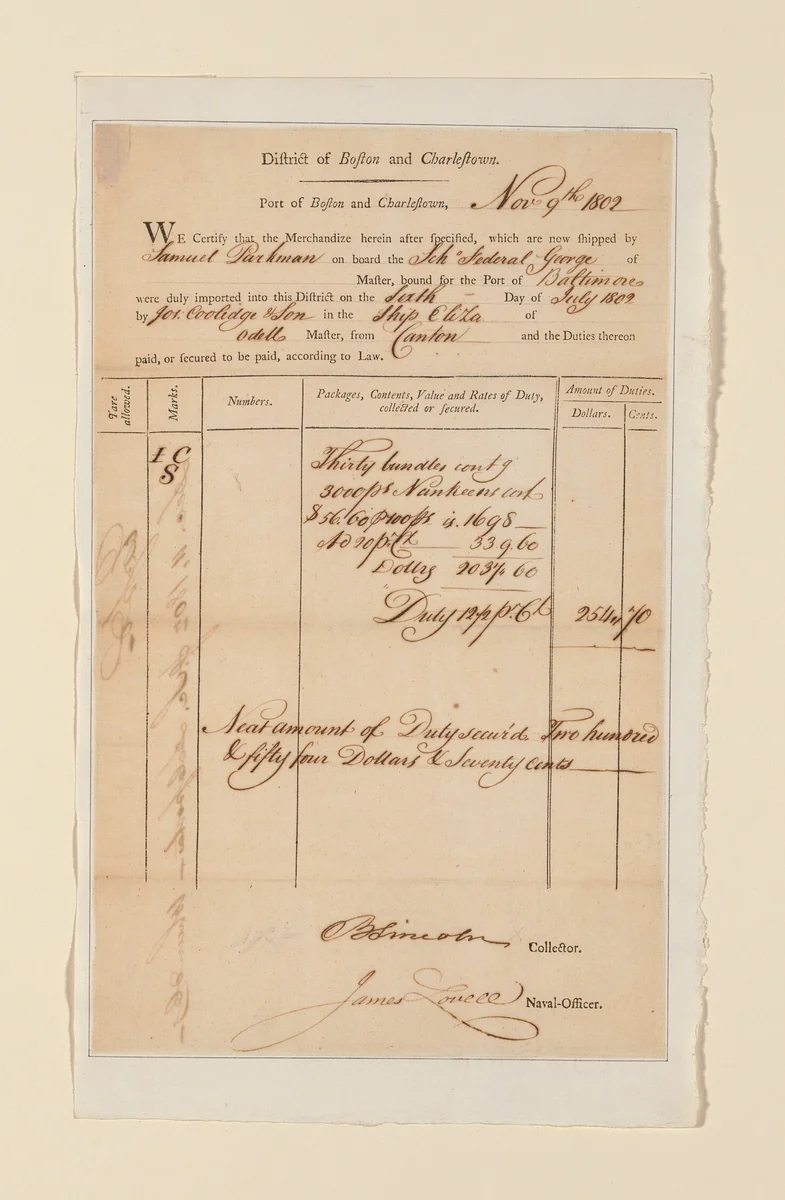 Diſtrict of Boſton and Charleſtown.
Port of Boſton and Charleſtown, Nov 9th 1802
WE Certify that the Merchandize herein after ſpecified, which are now ſhipped by
Samuel Parkman on board the Schr Federal George of
Maſter, bound for the Port of Baltimore
were duly imported into this Diſtrict on the Sixth Day of July 1802
by Jos. Coolidge & Son in the Ship Eliza of
Odell Maſter, from Canton and the Duties thereon
paid, or ſecured to be paid, according to Law.
Tare allowed.
Marks.
Numbers.
Packages, Contents, Value and Rates of Duty,
collected or ſecured.
Amount of Duties.
Dollars. Cents.
I C
S
Thirty bundles contg
3000 ps Nankeens cost
$56.60 p 100 ps is 1698
Ad 20 p Ct 339.60
Dollrs 2037 60
Duty 12½ pr Ct 254 70
Neat amount of Duty secur'd Two hundred
& fifty four Dollars & Seventy Cents
B Lincoln Collector.
James Lovell Naval-Officer.